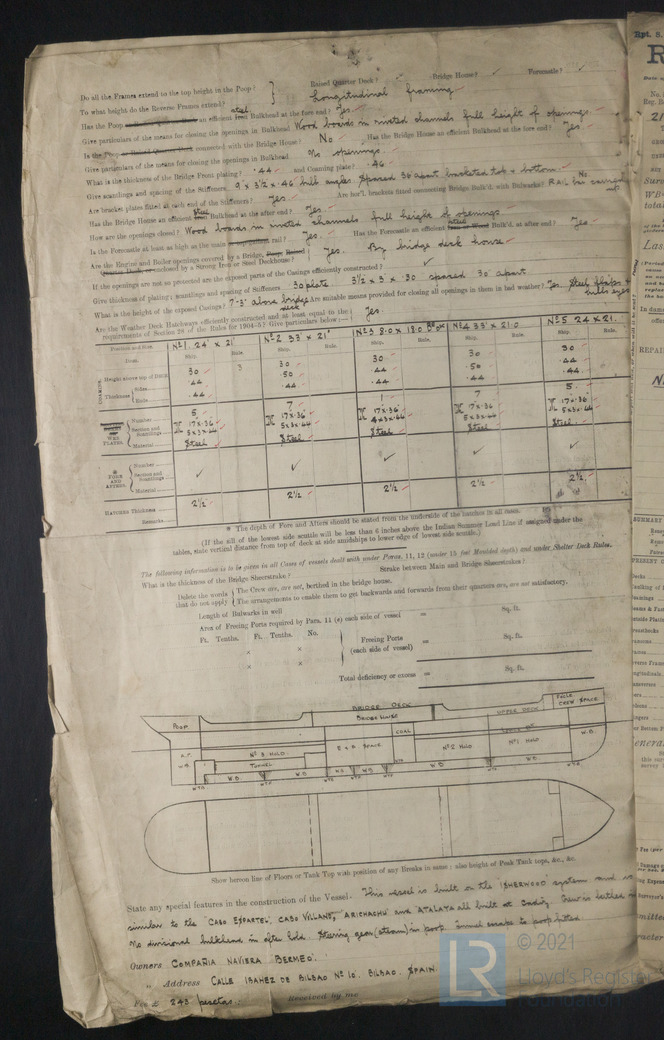 Do all the Frames extend to the top height in the Poop? Raised Quarter Deck? ✓ Bridge House? ✓ Forecastle? ✓
To what height do the Reverse Frames extend? Longitudinal framing
Has the Poop an efficient steel Bulkhead at the fore end? Yes.
Give particulars of the means for closing the openings in Bulkhead Wood boards in riveted channels full height of openings.
Is the Poop connected with the Bridge House? No Has the Bridge House an efficient Bulkhead at the fore end? Yes.
Give particulars of the means for closing the openings in Bulkhead No openings.
What is the thickness of the Bridge Front plating? .44 and Coaming plate? .46
Give scantlings and spacing of the Stiffeners 9 x 3½ x .46 bulb angles spaced 30 apart bracketed top & bottom.
Are bracket plates fitted at each end of the Stiffeners? Yes Are hor'l. brackets fitted connecting Bridge Bulk'd. with Bulwarks? No
Has the Bridge House an efficient Steel Bulkhead at the after end? Yes
How are the openings closed? Wood boards in riveted channels full height of openings
Is the Forecastle at least as high as the main rail? Yes. Has the Forecastle an efficient steel Bulk'd. at after end? Yes
Are the Engine and Boiler openings covered by a Bridge,
enclosed by a Strong Iron or Steel Deckhouse? Yes. By bridge deck house
If the openings are not so protected are the exposed parts of the Casings efficiently constructed? ✓
Give thickness of plating; scantlings and spacing of Stiffeners .30 plate 3½ x 3 x .30 spaced 30 apart
What is the height of the exposed Casings? 7'-3" above bridge deck Are suitable means provided for closing all openings in them in bad weather? Yes Steel flaps &
Are the Weather Deck Hatchways efficiently constructed and at least equal to the
requirements of Section 28 of the Rules for 1904-5? Give particulars below:— Yes
Position and Size. No 1. 24' x 21' No 2 33' x 21' No 3 8.0 x 18.0 No 4 33' x 21.0 No 5 24 x 21.
Item. Ship. Rule. Ship. Rule. Ship. Rule. Ship. Rule. Ship. Rule.
COAMINGS Height above top of DECK 30 30 30 30 30
Thickness Sides .44 .50 .44 .50 .44
Ends .44 .44 .44 .44 .44
WEB PLATES. Number 5 7 1 7 5
Section and Scantlings 17 x .36 17 x .36 17 x .36 17 x .36 17 x .36
5 x 3 x .44 5 x 3 x .44 4 x 3 x .44 5 x 3 x .44 5 x 3 x .44
Material Steel Steel Steel Steel Steel
* FORE AND AFTERS. Number
Section and Scantlings ✓ ✓ ✓ ✓ ✓
Material
HATCHES Thickness 2½ 2½ 2½ 2½ 2½
Remarks
* The depth of Fore and Afters should be stated from the underside of the hatches in all cases.
(If the sill of the lowest side scuttle will be less than 6 inches above the Indian Summer Load Line if assigned under the
tables, state vertical distance from top of deck at side amidships to lower edge of lowest side scuttle.)
The following information is to be given in all Cases of vessels dealt with under Paras. 11, 12 (under 15 feet Moulded depth) and under Shelter Deck Rules.
What is the thickness of the Bridge Sheerstrake? Strake between Main and Bridge Sheerstrakes?
Delete the words that do not apply { The Crew are, are not, berthed in the bridge house.
The arrangements to enable them to get backwards and forwards from their quarters are, are not satisfactory.
Length of Bulwarks in well
Area of Freeing Ports required by Para. 11 (e) each side of vessel = Sq. ft.
Ft. Tenths. Ft. Tenths. No.
× × Freeing Ports (each side of vessel) = Sq. ft.
× ×
Total deficiency or excess = Sq. ft.
POOP BRIDGE DECK BRIDGE HOUSE UPPER DECK F'CLE CREW SPACE
A.P. W.B. No 3 HOLD TUNNEL E & B SPACE COAL No 2 HOLD No 1 HOLD W.B.
W.B. W.B. W.B. W.B.
Show hereon line of Floors or Tank Top with position of any Breaks in same: also height of Peak Tank tops, &c., &c.
State any special features in the construction of the Vessel. This vessel is built on the 'ISHERWOOD' system and is
similar to the "CABO ESPARTEL", CABO VILLANO, ARICHACHU and ATALAYA all built at Cadiz.
No divisional bulkhead in after hold. Steering gear (steam) in poop. Tunnel escape to poop fitted
Owners COMPAÑIA NAVIERA BERMEO.
" Address CALLE IBAÑEZ DE BILBAO No 10. BILBAO. SPAIN.
Fee £ 243 pesetas.: Received by me
LR © 2021
Lloyd's Register
Foundation